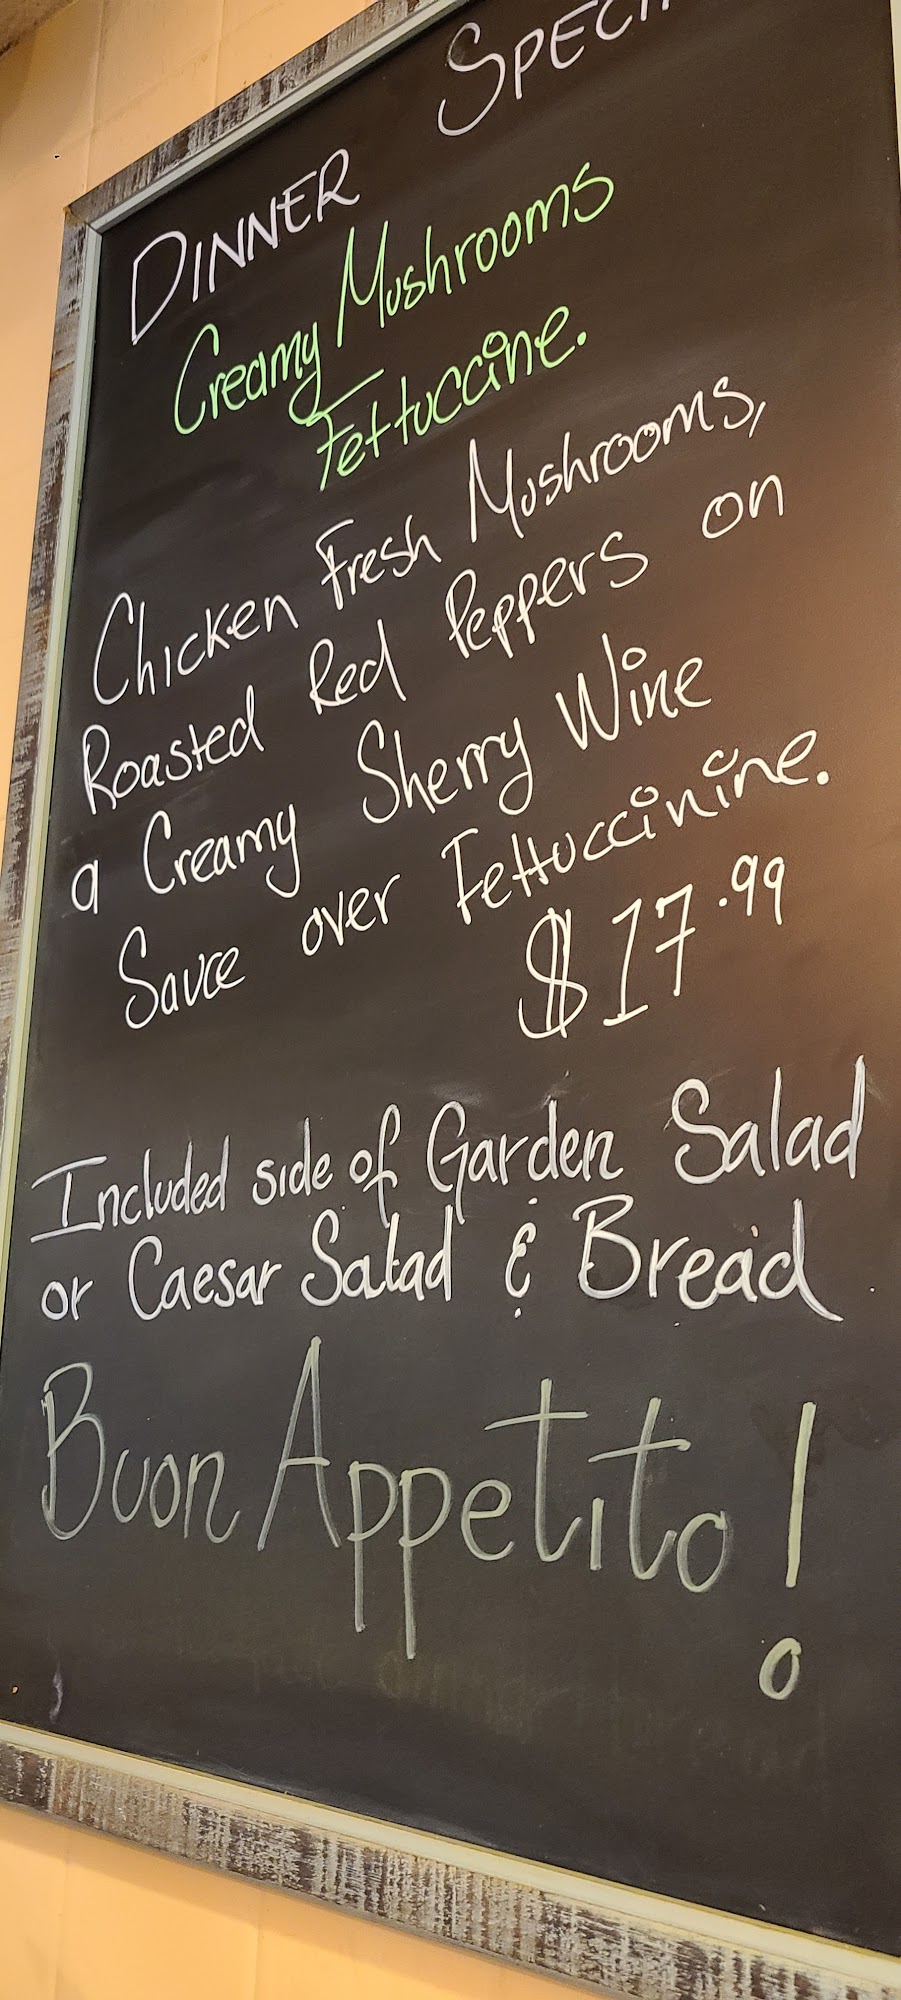 DINNER SPECI
Creamy Mushrooms
Fettuccine.
Chicken Fresh Mushrooms,
Roasted Red Peppers on
a Creamy Sherry Wine
Sauce over Fettuccinine.
$17.99
Included side of Garden Salad
or Caesar Salad & Bread
Buon Appetito!